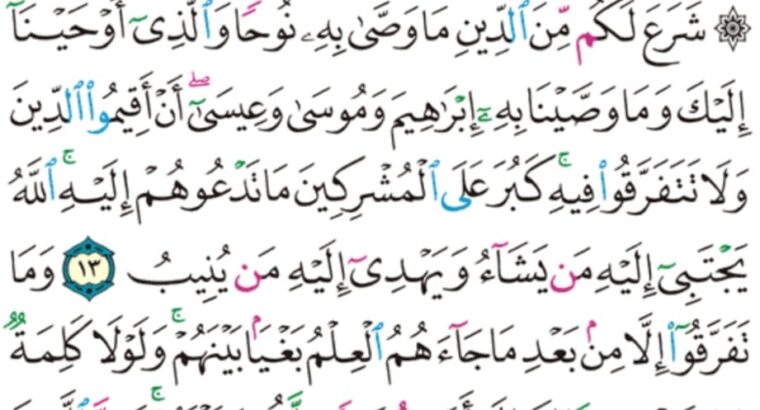 ۞ شَرَعَ لَكُم مِّنَ ٱلدِّينِ مَا وَصَّىٰ بِهِۦ نُوحًا وَٱلَّذِىٓ أَوْحَيْنَآ
إِلَيْكَ وَمَا وَصَّيْنَا بِهِۦٓ إِبْرَٰهِيمَ وَمُوسَىٰ وَعِيسَىٰٓ ۖ أَنْ أَقِيمُوا۟ ٱلدِّينَ
وَلَا تَتَفَرَّقُوا۟ فِيهِ ۚ كَبُرَ عَلَى ٱلْمُشْرِكِينَ مَا تَدْعُوهُمْ إِلَيْهِ ۚ ٱللَّهُ
يَجْتَبِىٓ إِلَيْهِ مَن يَشَآءُ وَيَهْدِىٓ إِلَيْهِ مَن يُنِيبُ ١٣ وَمَا
تَفَرَّقُوٓا۟ إِلَّا مِنۢ بَعْدِ مَا جَآءَهُمُ ٱلْعِلْمُ بَغْيًۢا بَيْنَهُمْ ۚ وَلَوْلَا كَلِمَةٌ